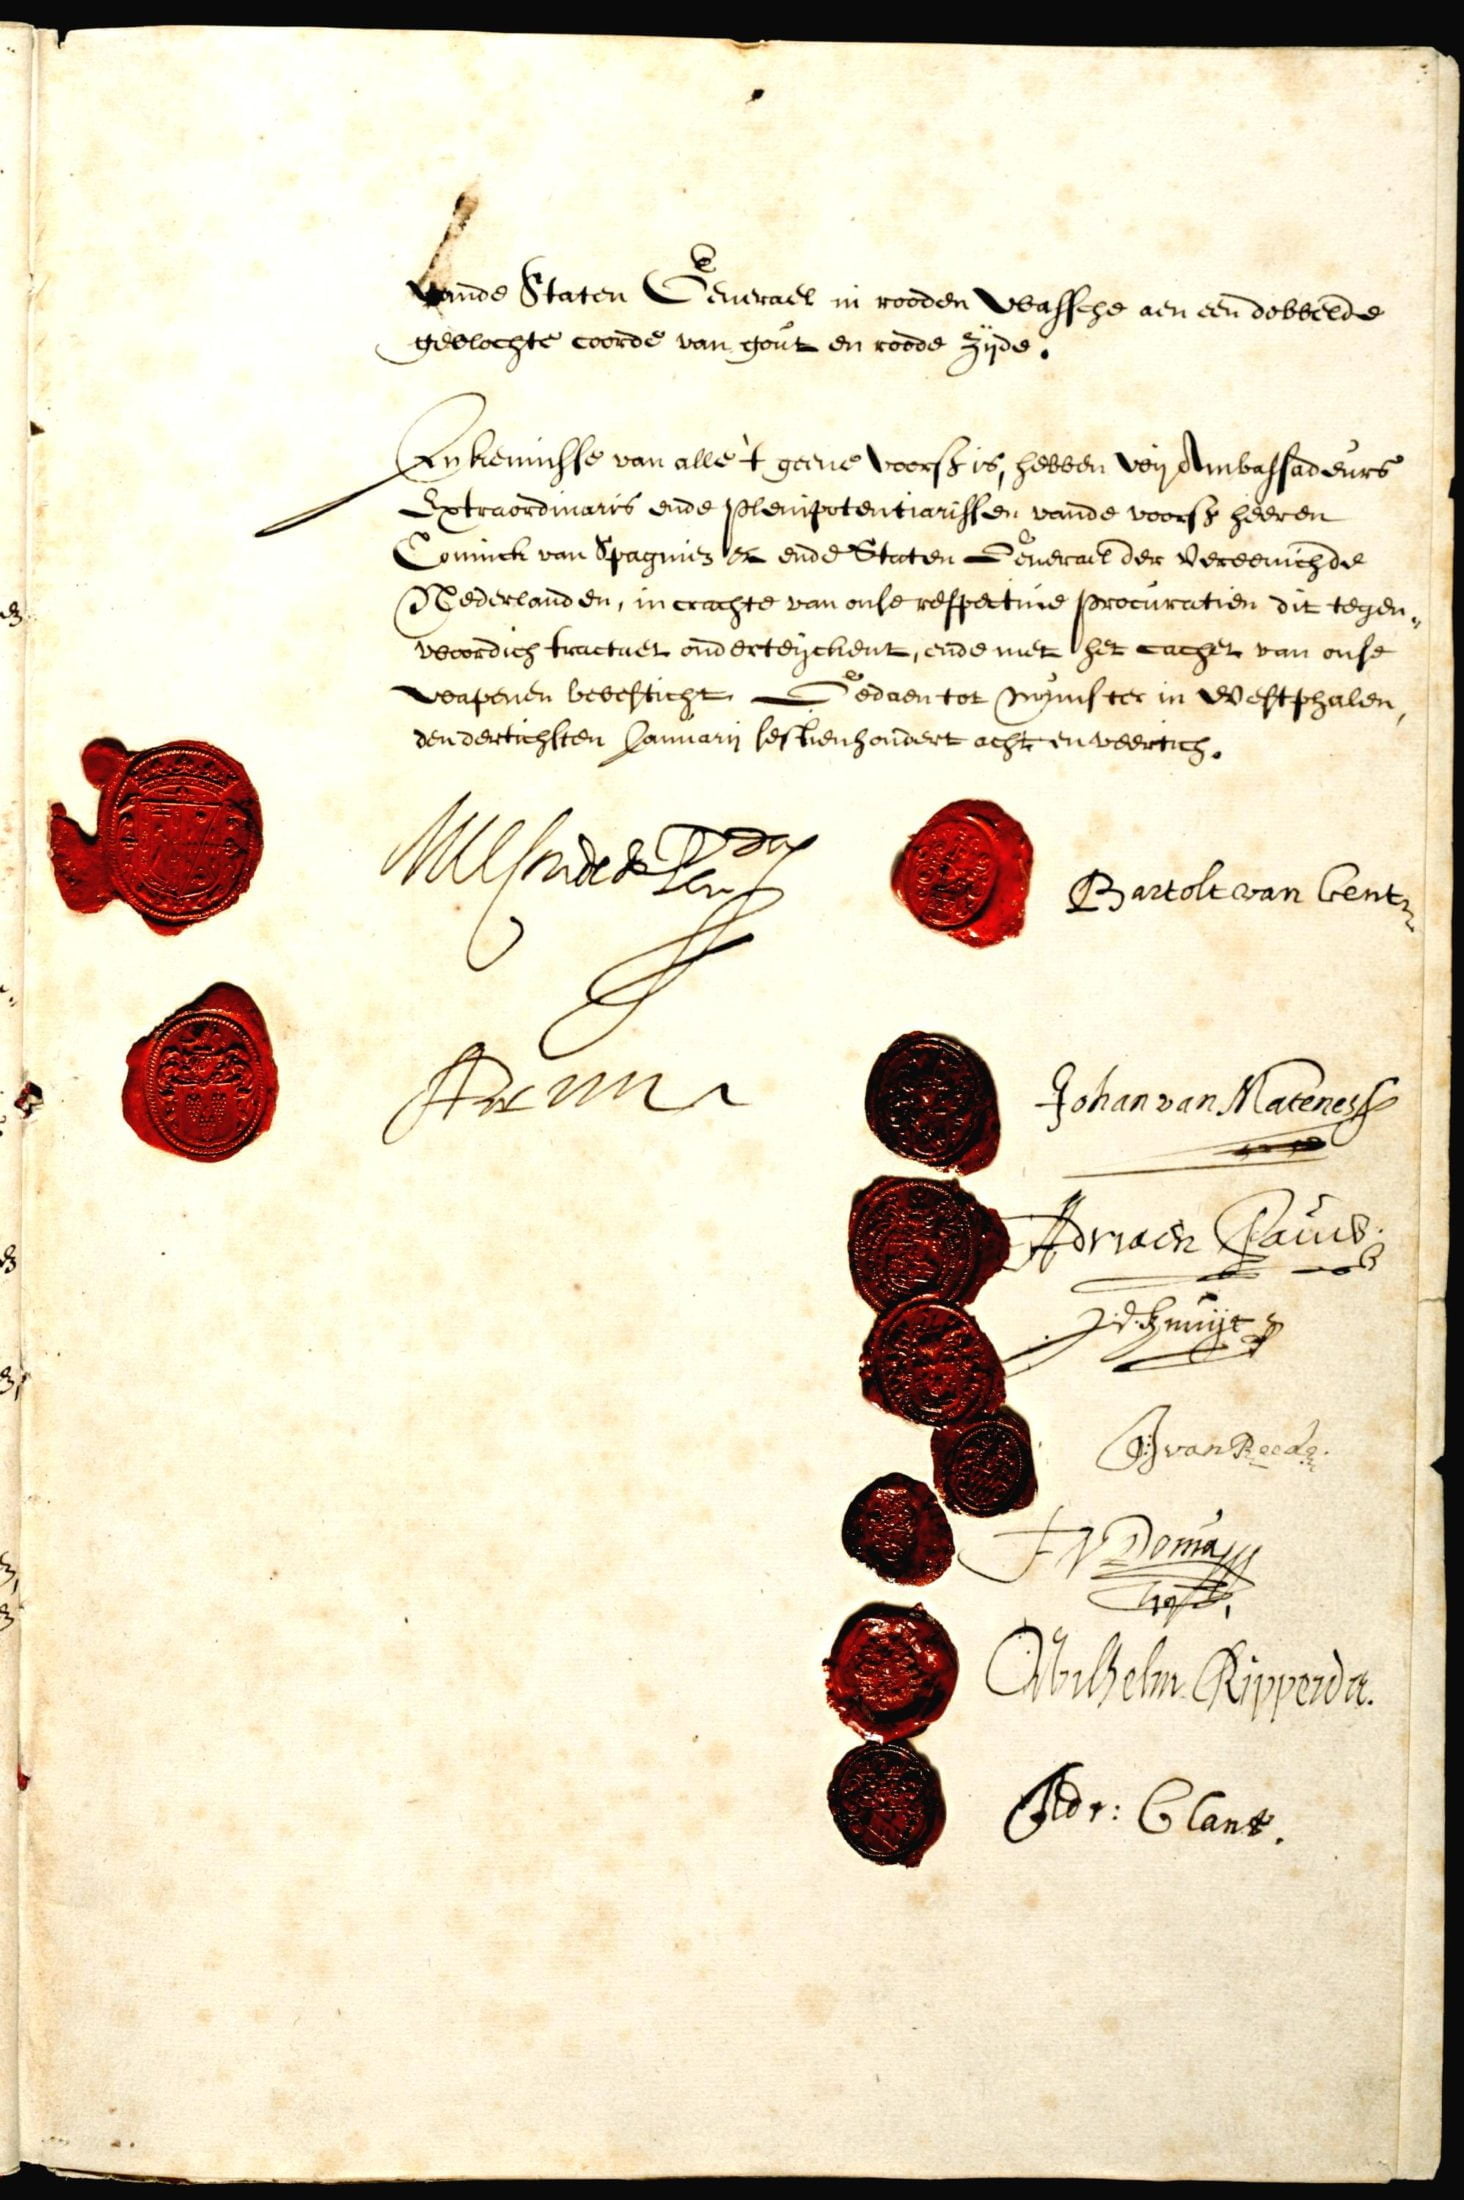 vande Staten Generael in rooden Wassche aen een dobbelde
gevlochte coorde van gout en roode zijde.
In kennisse van alle 't geene voorsz is, hebben wij Ambassadeurs
Extraordinaris ende Plenipotentiarissen vande voorsz heeren
Coninck van Spagnien ende Staten Generael der Vereenichde
Nederlanden, in crachte van onse respective procuratien dit tegen-
woordich tractaet onderteyckent, ende met het cachet van onse
wapenen bevesticht. Gedaen tot Munster in Westphalen,
den dertichsten Januarij sestienhondert acht en veertich.
Bartolt van Gent
ABrun
Johan van Matenesse
Adriaen Pauw.
J. d. Knuijt
G: van Reede.
F V Donia
Wilhelm Ripperda.
Adr: Clant.